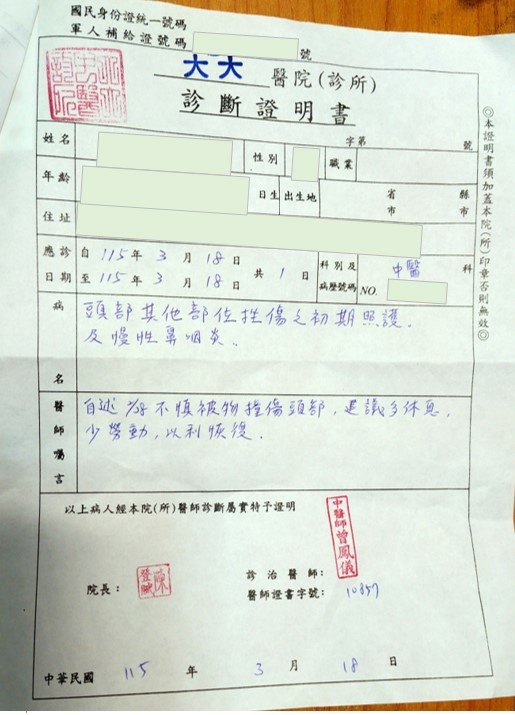 國民身份證統一號碼
軍人補給證號碼 號
大大 醫院(診所)
診斷證明書
字第 號
姓名 性別 職業
年齡 日生 出生地 省市 縣市
住址
應診日期 自115年3月18日 至115年3月18日 共1日 科別及病歷號碼 中醫科 NO.
病名
頭部其他部位挫傷之初期照護.
及慢性鼻咽炎.
醫師囑言
自述2/28不慎被物撞傷頭部,建議多休息,
少勞動,以利恢復.
以上病人經本院(所)醫師診斷屬實特予證明
中醫師曾鳳儀
院長:
診治醫師:
醫師證書字號: 10857
中華民國 115 年 3 月 18 日
◎本證明書須加蓋本院(所)印章否則無效◎